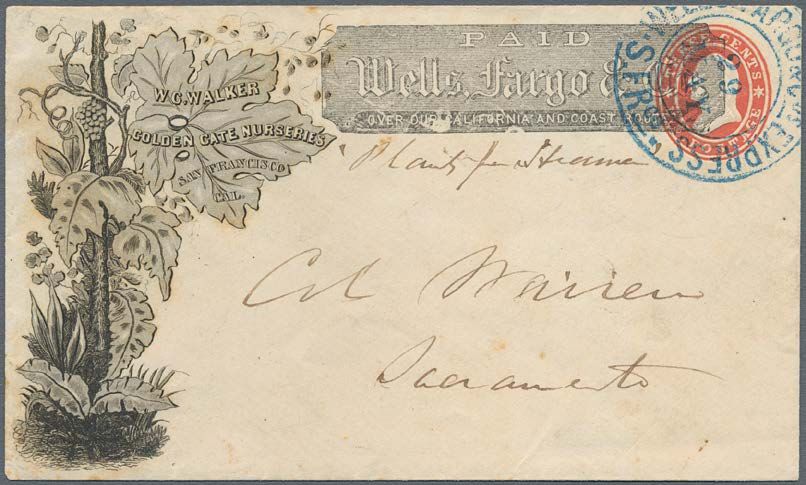 W.C. WALKER
GOLDEN GATE NURSERIES
SAN FRANCISCO
CAL.
PAID
Wells, Fargo &
OVER OUR CALIFORNIA AND COAST ROUTES
THREE CENTS
EXPRESS
"Plants per Steamer
Col Warren
Sacramento